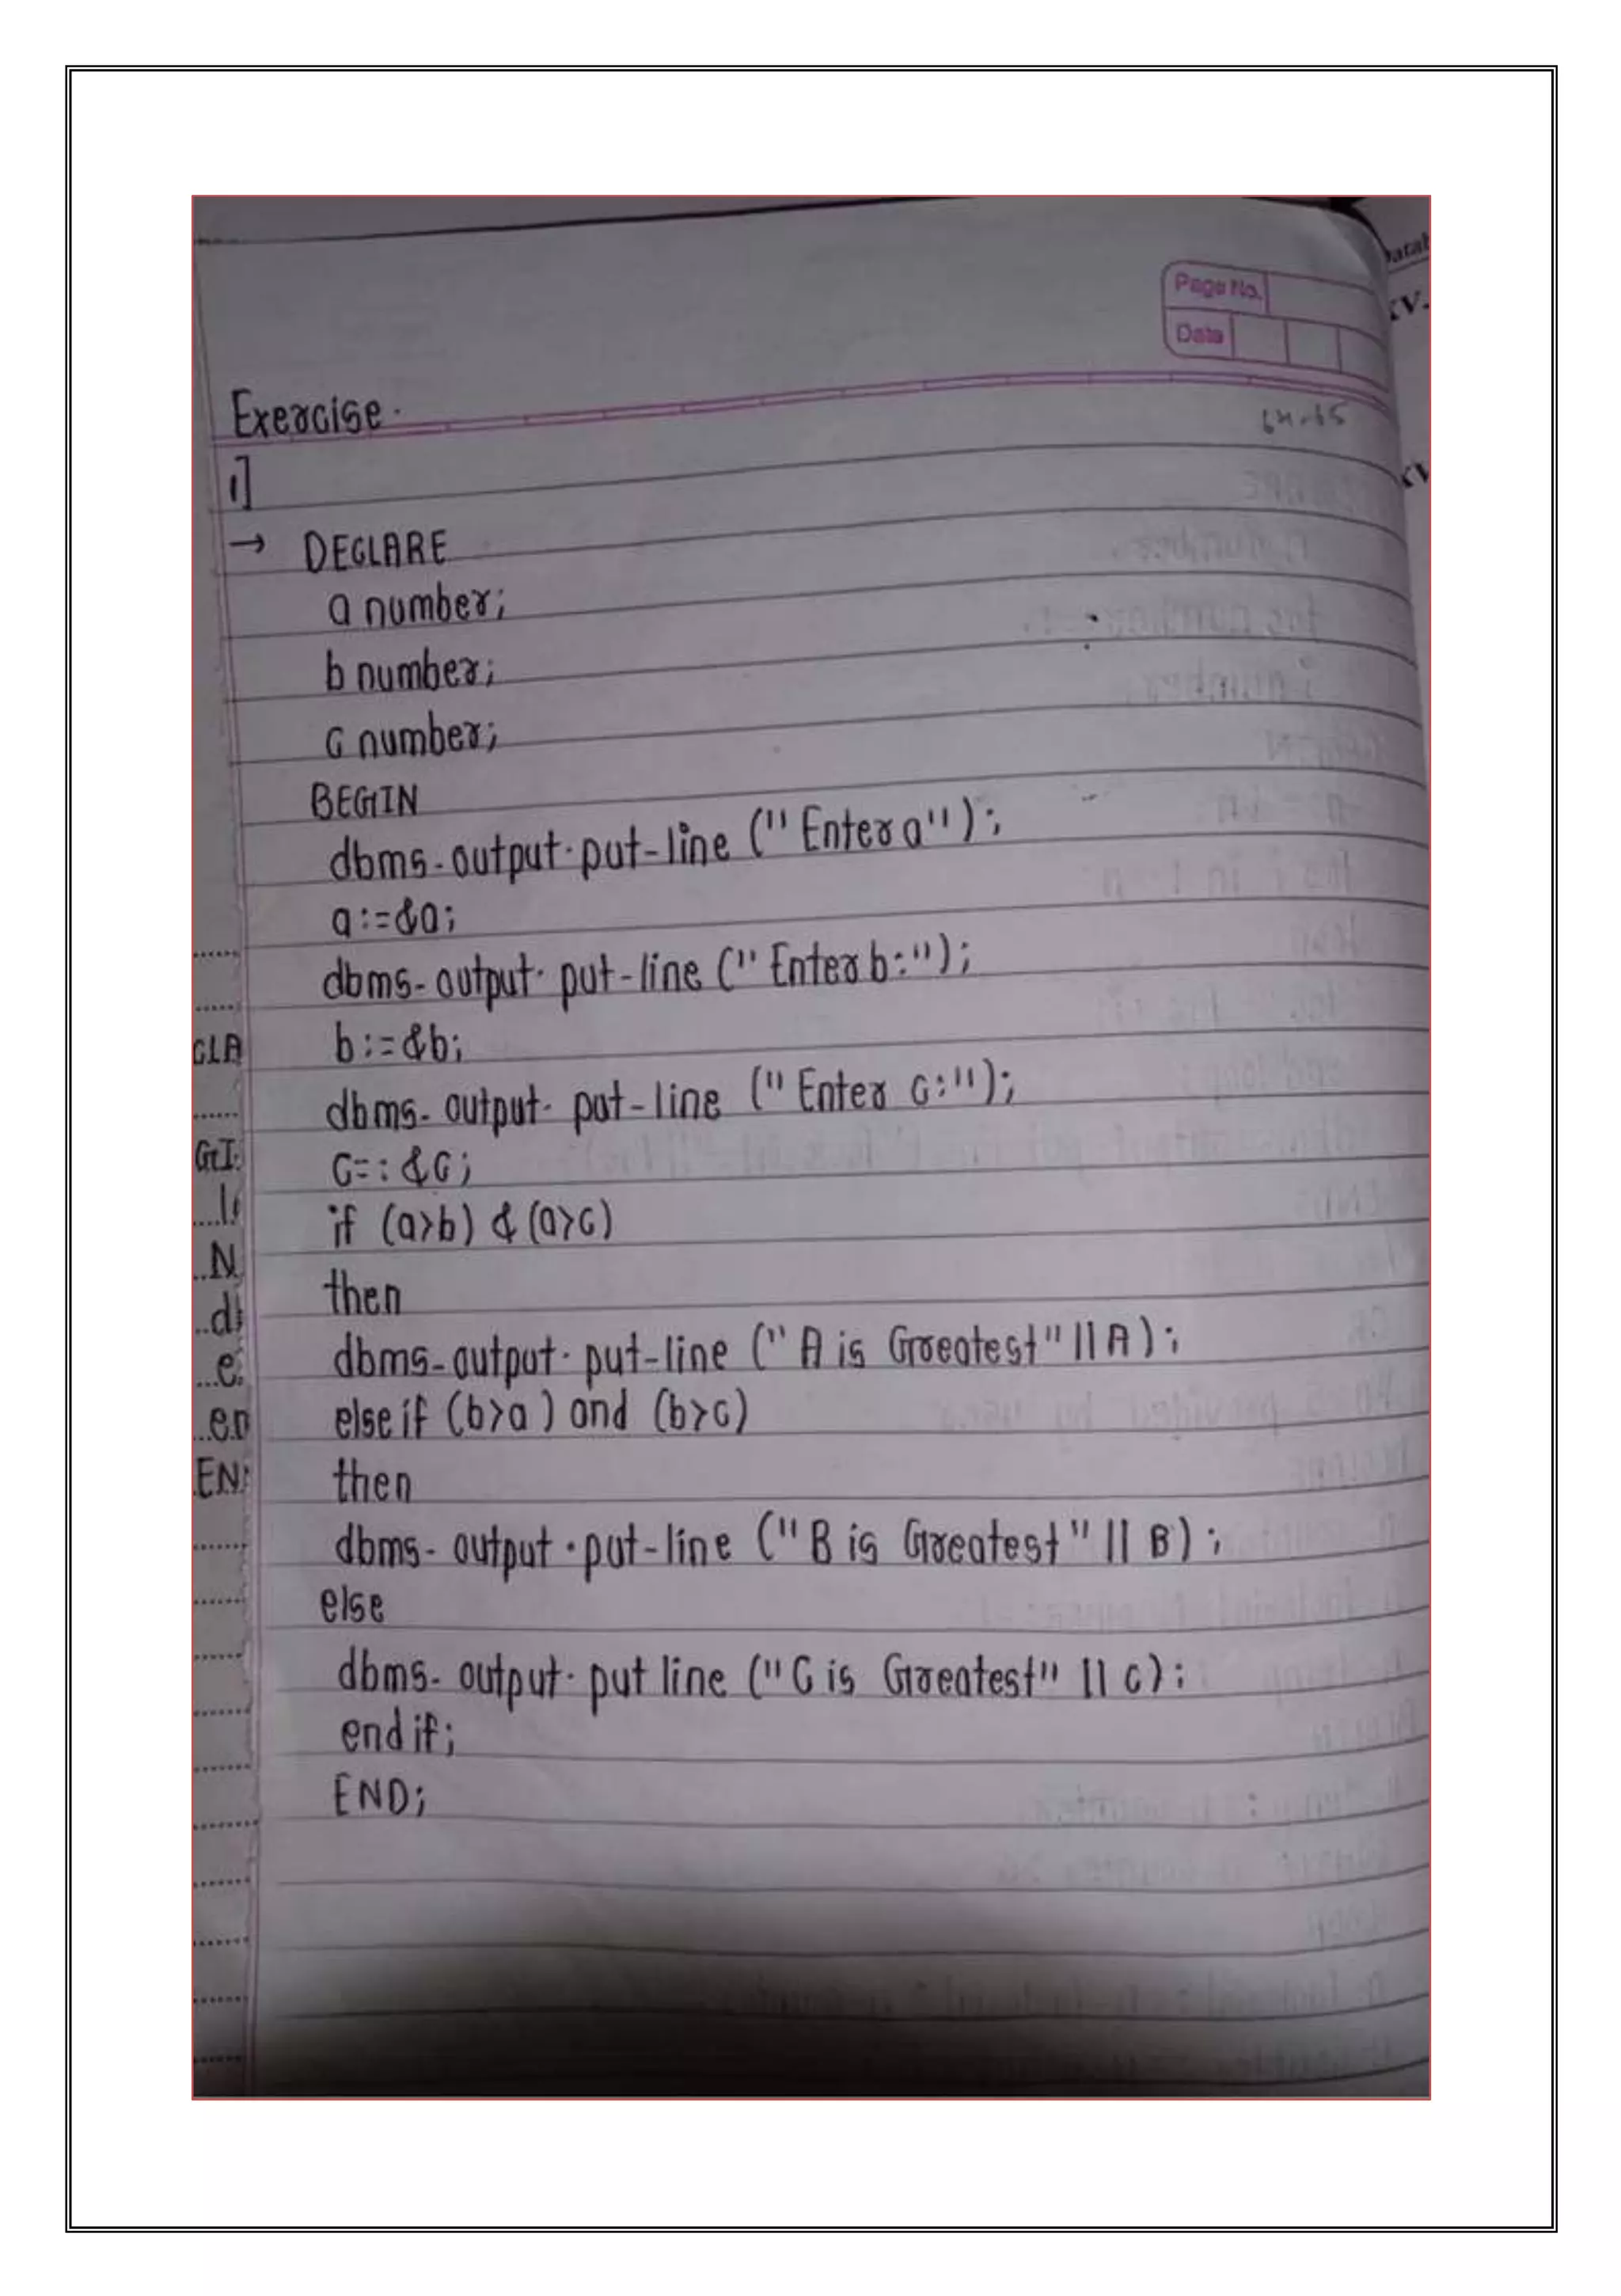 Page No.
Date
Exercise.
1]
→ DECLARE
a number;
b number;
c number;
BEGIN
dbms-output.put-line ("Enter a");
a:=&a;
dbms-output.put-line ("Enter b:");
b:=&b;
dbms-output.put-line ("Enter c:");
c=:&c;
if (a>b) & (a>c)
then
dbms-output.put-line ("A is Greatest"||A);
else if (b>a) and (b>c)
then
dbms-output.put-line ("B is Greatest" || B);
else
dbms-output.put line ("C is Greatest" || c);
end if;
END;